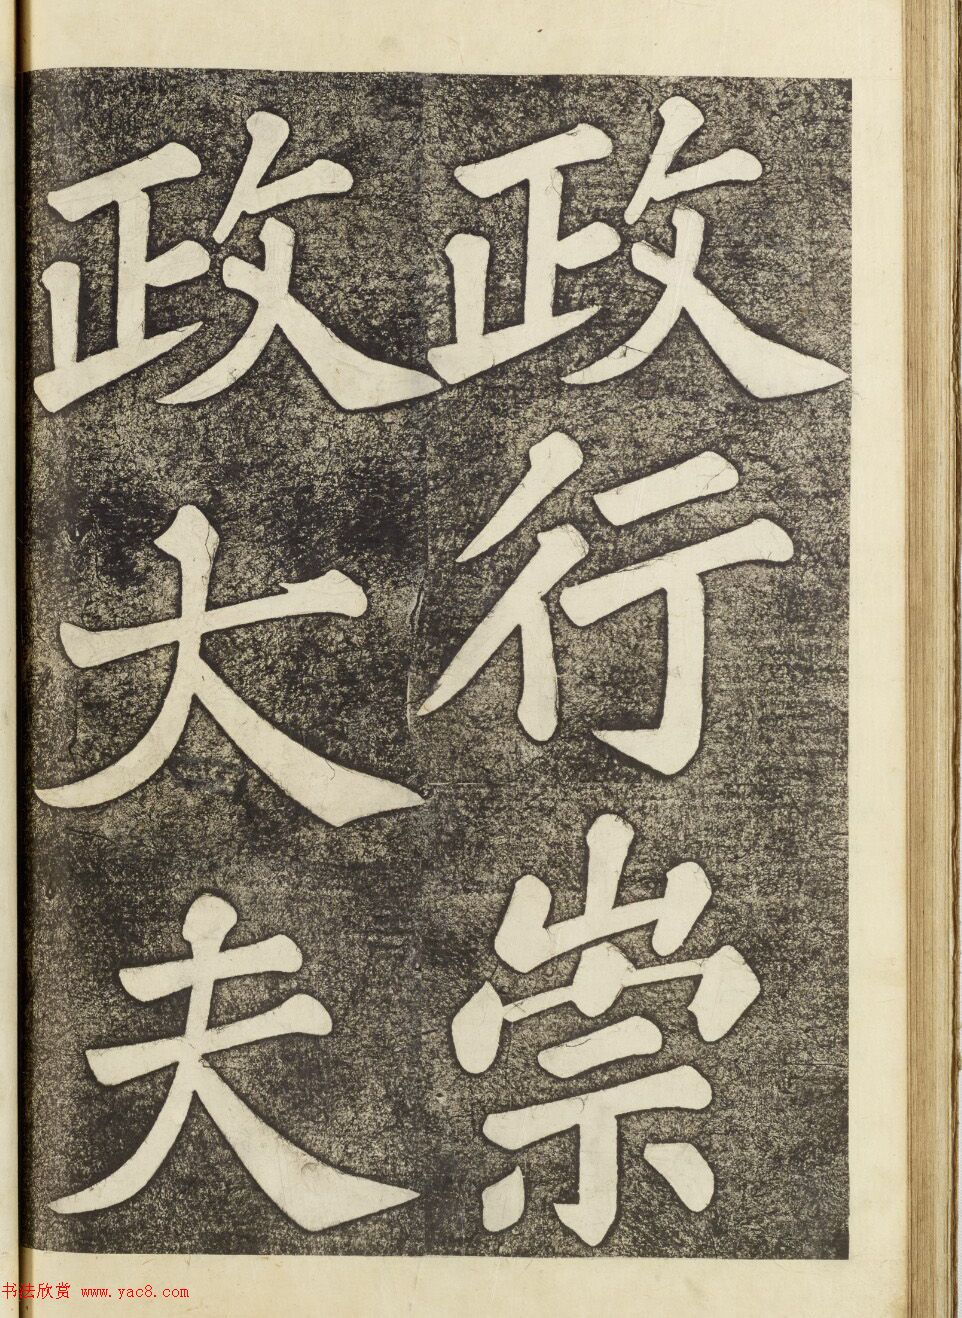 政行崇
政大夫
书法欣赏 www.yac8.com